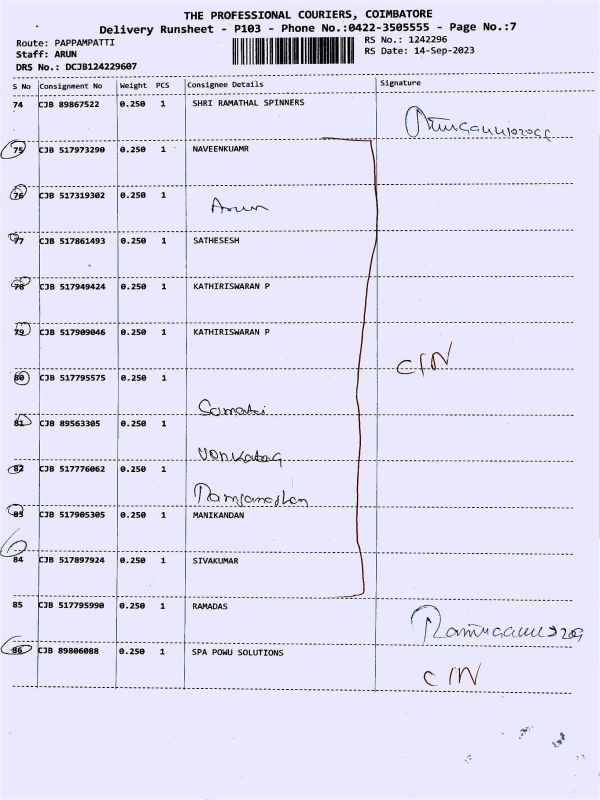 THE PROFESSIONAL COURIERS, COIMBATORE
Delivery Runsheet - P103 - Phone No.:0422-3505555 - Page No.:7
Route: PAPPAMPATTI
Staff: ARUN
DRS No.: DCJB124229607
RS No.: 1242296
RS Date: 14-Sep-2023
S No Consignment No Weight PCS Consignee Details Signature
74 CJB 89867522 0.250 1 SHRI RAMATHAL SPINNERS
75 CJB 517973290 0.250 1 NAVEENKUAMR
76 CJB 517319302 0.250 1
Arun
77 CJB 517861493 0.250 1 SATHESESH
78 CJB 517949424 0.250 1 KATHIRISWARAN P
79 CJB 517909046 0.250 1 KATHIRISWARAN P
C/N
80 CJB 517795575 0.250 1
81 CJB 89563305 0.250 1
82 CJB 517776062 0.250 1
83 CJB 517905305 0.250 1 MANIKANDAN
84 CJB 517897924 0.250 1 SIVAKUMAR
85 CJB 517795990 0.250 1 RAMADAS
86 CJB 89806088 0.250 1 SPA POWU SOLUTIONS
C/N